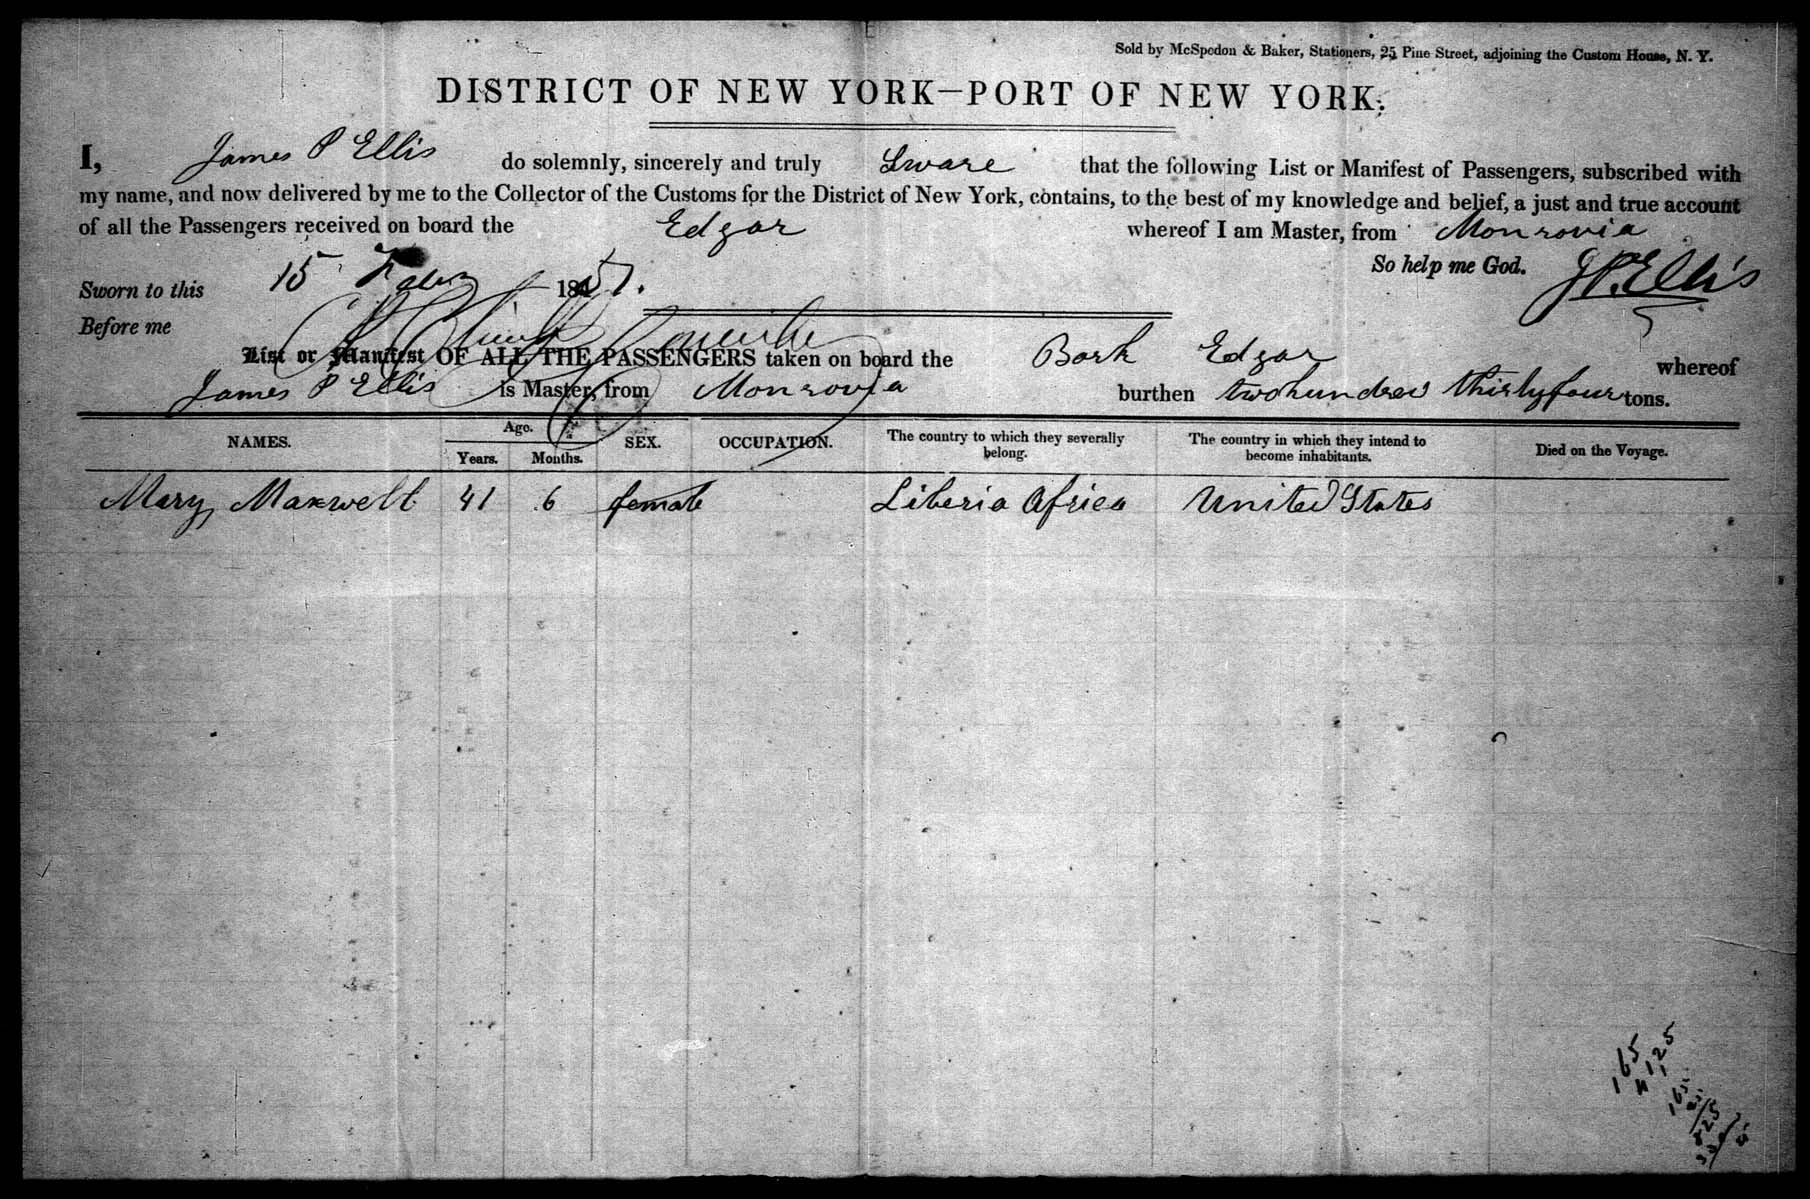 Sold by McSpedon & Baker, Stationers, 25 Pine Street, adjoining the Custom House, N. Y.
DISTRICT OF NEW YORK—PORT OF NEW YORK.
I, James P Ellis do solemnly, sincerely and truly Sware that the following List or Manifest of Passengers, subscribed with
my name, and now delivered by me to the Collector of the Customs for the District of New York, contains, to the best of my knowledge and belief, a just and true account
of all the Passengers received on board the Edgar whereof I am Master, from Monrovia
So help me God. J P. Ellis
Sworn to this 15 1851.
Before me
List or Manifest OF ALL THE PASSENGERS taken on board the Bark Edgar whereof
James P Ellis is Master, from Monrovia burthen twohundred thirtyfour tons.
NAMES. Age. Years. Months. SEX. OCCUPATION. The country to which they severally belong. The country in which they intend to become inhabitants. Died on the Voyage.
Mary Maxwell 41 6 female Liberia Africa United States
165
11 125
165
825